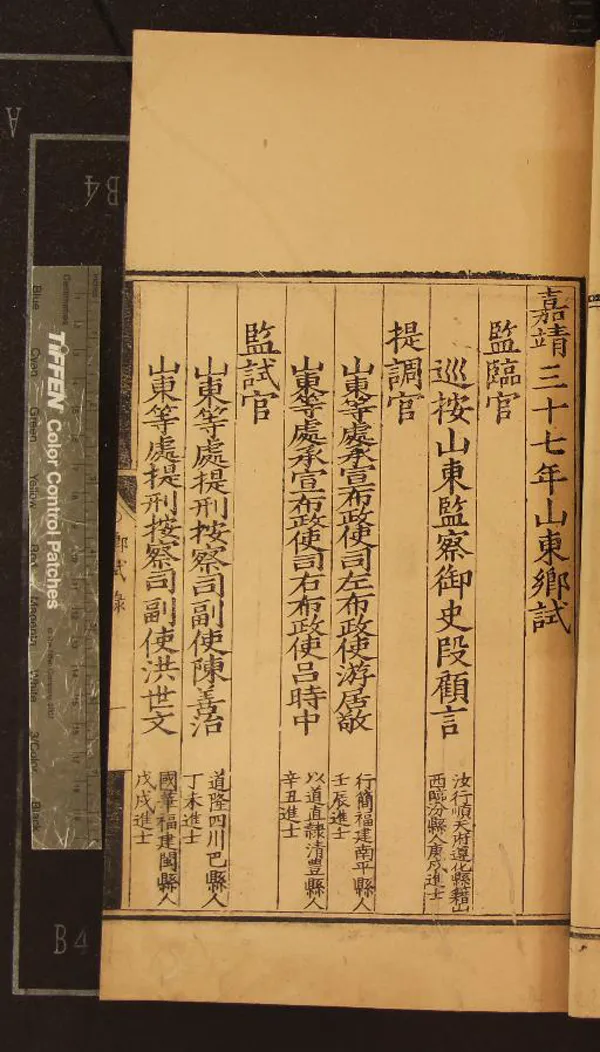 嘉靖三十七年山東鄉試
監臨官
巡按山東監察御史段顧言
汝行順天府遵化縣籍山
西臨汾縣人庚戌進士
提調官
山東等處承宣布政使司左布政使游居敬
行簡福建南平縣人
壬辰進士
山東等處承宣布政使司右布政使呂時中
以道直隸清豐縣人
辛丑進士
監試官
山東等處提刑按察司副使陳善治
道隆四川巴縣人
丁未進士
山東等處提刑按察司副使洪世文
國華福建閩縣人
戊戌進士
鄉試錄
一
TIFFEN Color Control Patches
Blue
Cyan
Green
Yellow
Red
Magenta
White
3/Color
Black
Centimetres
A
B4
B4